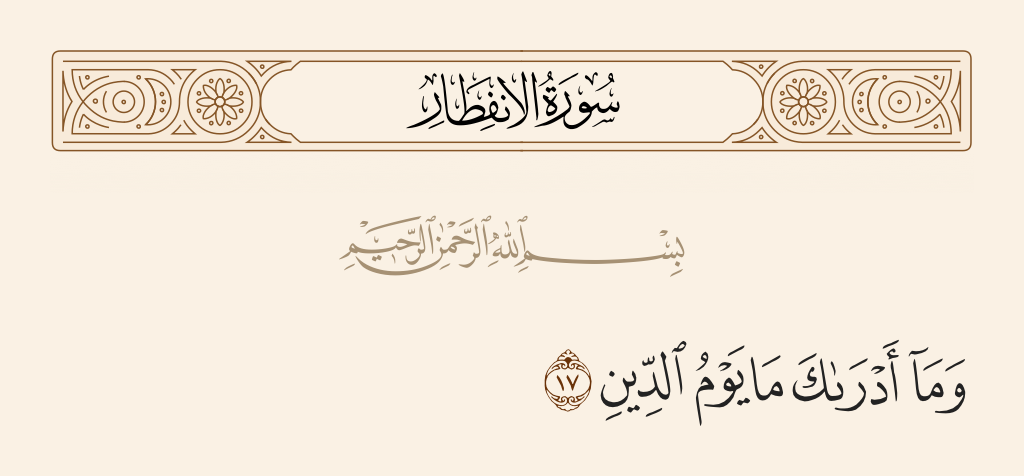 سُورَةُ الانفِطَارِ
بِسْمِ ٱللَّهِ ٱلرَّحْمَٰنِ ٱلرَّحِيمِ
وَمَآ أَدْرَىٰكَ مَا يَوْمُ ٱلدِّينِ ١٧